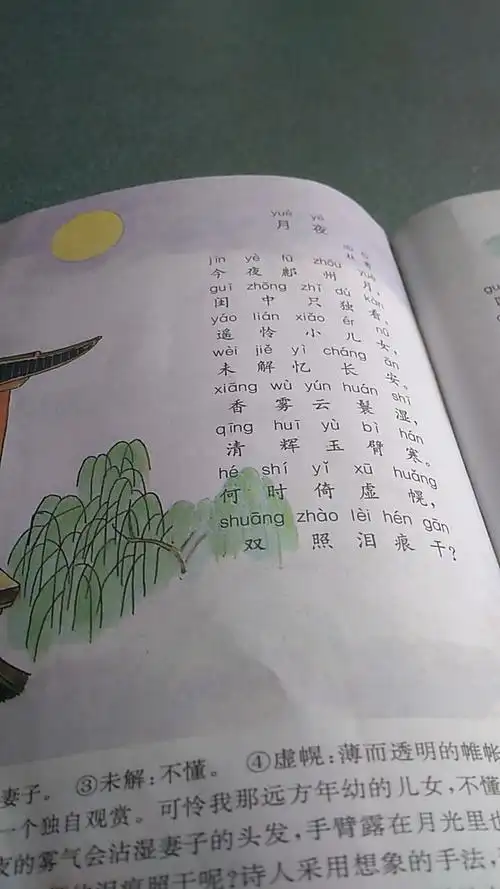 yuè yè
月 夜
jīn yè fū zhōu yuè
今 夜 鄜 州 月，
guī zhōng zhǐ dú kàn
闺 中 只 独 看。
yáo lián xiǎo ér nǚ
遥 怜 小 儿 女，
wèi jiě yì cháng ān
未 解 忆 长 安。
xiāng wù yún huán shī
香 雾 云 鬟 湿，
qīng huī yù bì hán
清 辉 玉 臂 寒。
hé shí yǐ xū huǎng
何 时 倚 虚 幌，
shuāng zhào lèi hén gān
双 照 泪 痕 干？
妻子。 ③未解：不懂。 ④虚幌：薄而透明的帷帐
一个独自观赏。可怜我那远方年幼的儿女，不懂
夜的雾气会沾湿妻子的头发，手臂露在月光里也
泪痕照干呢？诗人采用想象的手法，